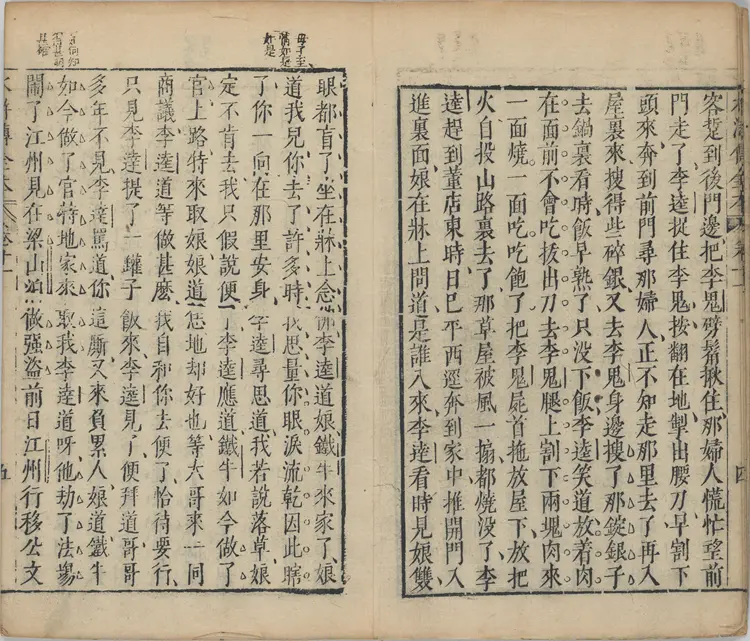 客踅到後門邊把李鬼劈鬅揪住那婦人慌忙望前
門走了李逵捉住李鬼按翻在地掣出腰刀早割下
頭來奔到前門尋那婦人正不知走那里去了再入
屋裏來搜得些碎銀又去李鬼身邊搜了那錠銀子
去鍋裏看時飯早熟了只没下飯李逵笑道放着肉
在面前不會吃拔出刀去李鬼腿上割下兩塊肉來
一面燒一面吃吃飽了把李鬼屍首拖放屋下放把
火自投山路裏去了那草屋被風一搧都燒没了李
逵趕到董店東時日已平西逕奔到家中推開門入
進裏面娘在牀上問道是誰入來李逵看時見娘雙
四
母子至
情如是
眼都盲了坐在牀上念佛李逵道娘鐵牛來家了娘
道我兒你去了許多時我思量你眼淚流乾因此瞎
了你一向在那里安身李逵尋思道我若說落草娘
定不肯去我只假說便了李逵應道鐵牛如今做了
官上路特來取娘娘道恁地却好也等大哥來一同
商議李逵道等做甚麽我自和你去便了恰待要行
只見李達提了一罐子飯來李逵見了便拜道哥哥
多年不見李達罵道你這厮又來負累人娘道鐵牛
如今做了官特地家來取我李達道呀他劫了法場
鬧了江州見在梁山泊做强盜前日江州行移公文
水滸傳全本 卷十一
五